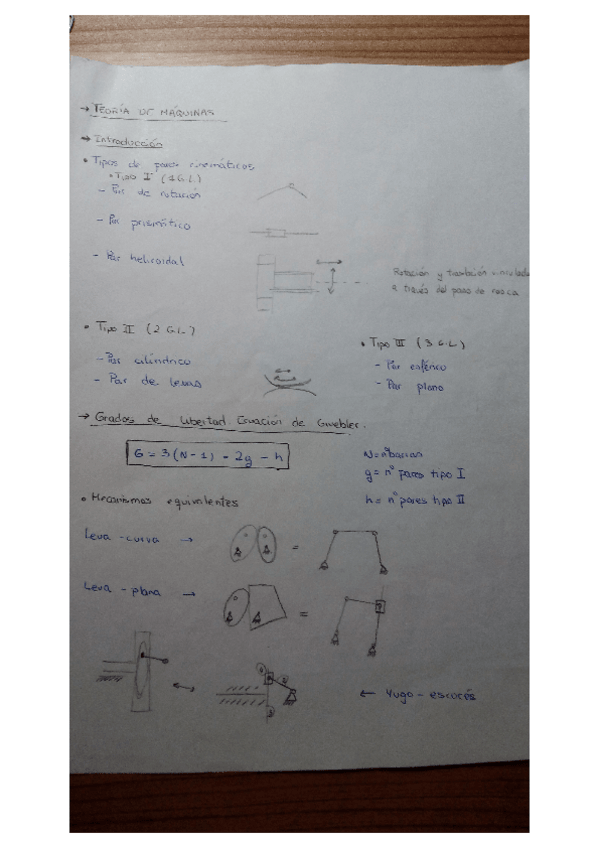 → TEORÍA DE MÁQUINAS
→ Introducción
• Tipos de pares cinemáticos
• Tipo I (1 G.L.)
- Par de rotación
- Par prismático
- Par helicoidal
Rotación y traslación vinculada
a través del paso de rosca
• Tipo II (2 G.L.)
- Par cilíndrico
- Par de levas
• Tipo III (3 G.L.)
- Par esférico
- Par plano
→ Grados de libertad. Ecuación de Gruebler.
G = 3(N-1) - 2g - h
N = nº barras
g = nº pares tipo I
h = nº pares tipo II
• Mecanismos equivalentes
Leva - curva →
=
Leva - plana →
=
← Yugo - escocés